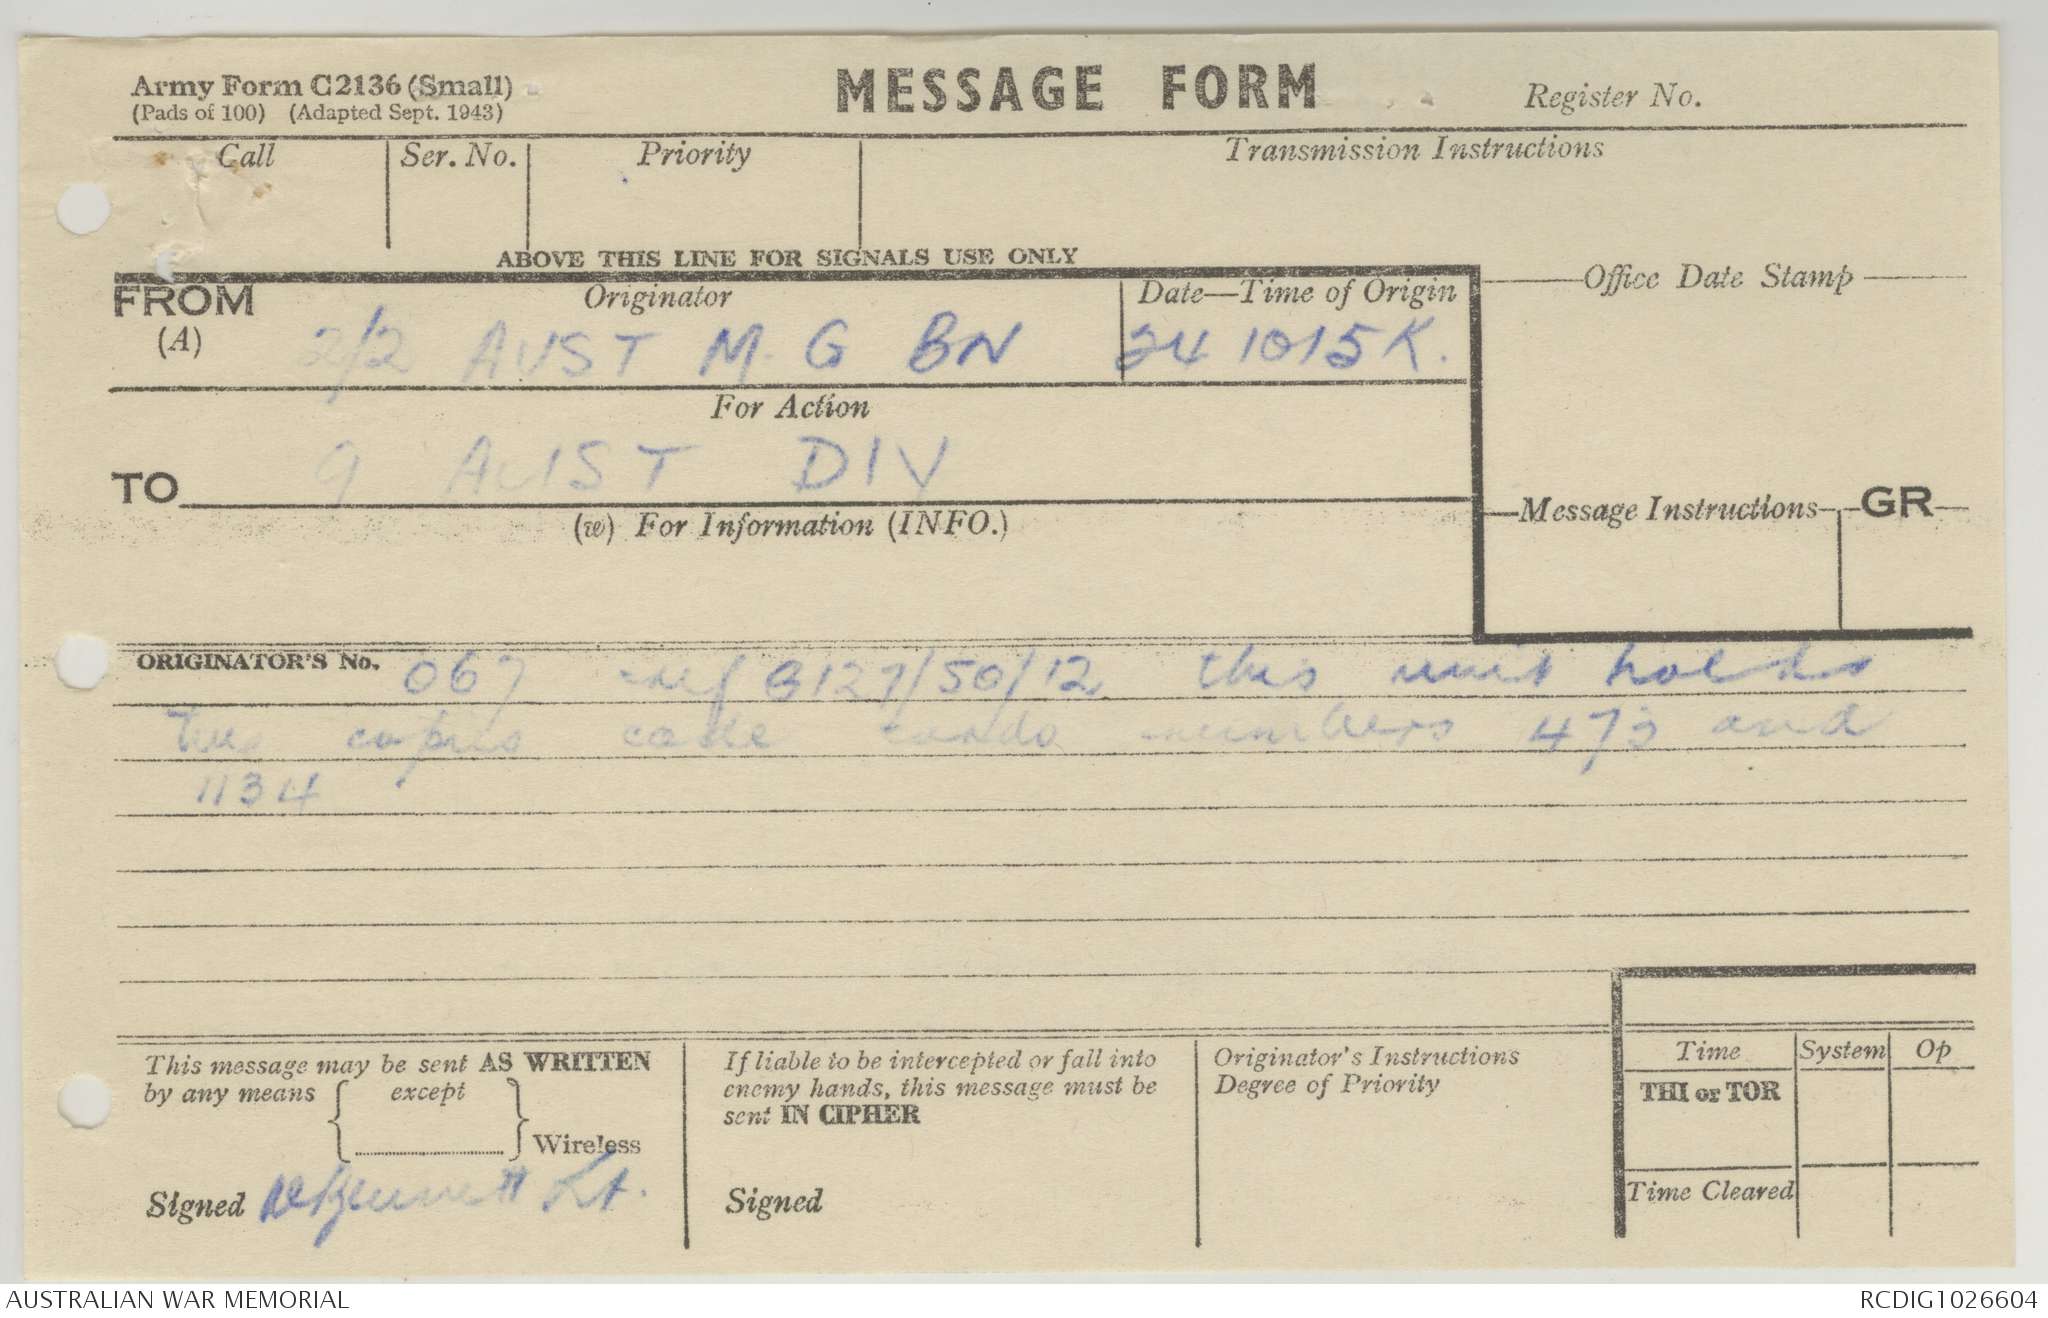 Army Form C2136 (Small)
(Pads of 100) (Adapted Sept. 1943)
MESSAGE FORM
Register No.
Call
Ser. No.
Priority
Transmission Instructions
ABOVE THIS LINE FOR SIGNALS USE ONLY
FROM
(A)
Originator
2/2 AUST M G BN
Date—Time of Origin
241015K.
Office Date Stamp
For Action
TO
9 AUST DIV
(w) For Information (INFO.)
Message Instructions
GR
ORIGINATOR'S No. 067 ref G127/50/12 this unit holds
two copies code cards numbers 473 and
1134
This message may be sent AS WRITTEN
by any means { except
} Wireless
Signed Lt.
If liable to be intercepted or fall into
enemy hands, this message must be
sent IN CIPHER
Signed
Originator's Instructions
Degree of Priority
Time System Op
THI or TOR
Time Cleared
AUSTRALIAN WAR MEMORIAL
RCDIG1026604